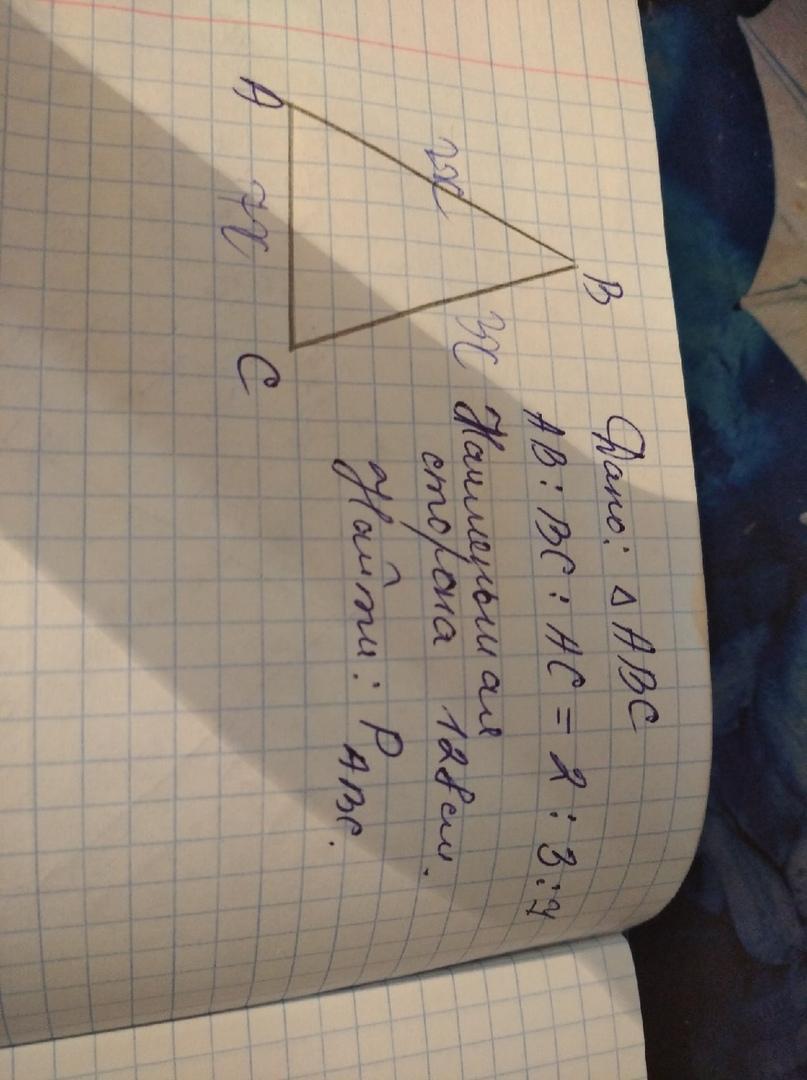 B
2x
3x
A
C
Дано: △ ABC
AB : BC : AC = 2 : 3 : 4
Наименьшая
сторона 128см.
Найти: P ABC.